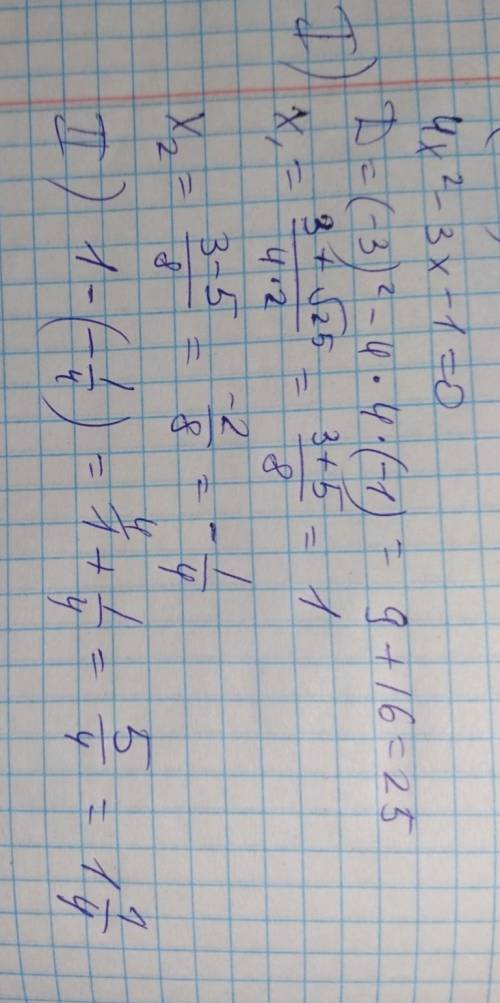 4x² - 3x - 1 = 0
D = (-3)² - 4 · 4 · (-1) = 9 + 16 = 25
I) x₁ = (3 + √25)/(4·2) = (3+5)/8 = 1
x₂ = (3-5)/8 = -2/8 = -1/4
II) 1 - (-1/4) = 1 + 1/4 = 5/4 = 1 1/4